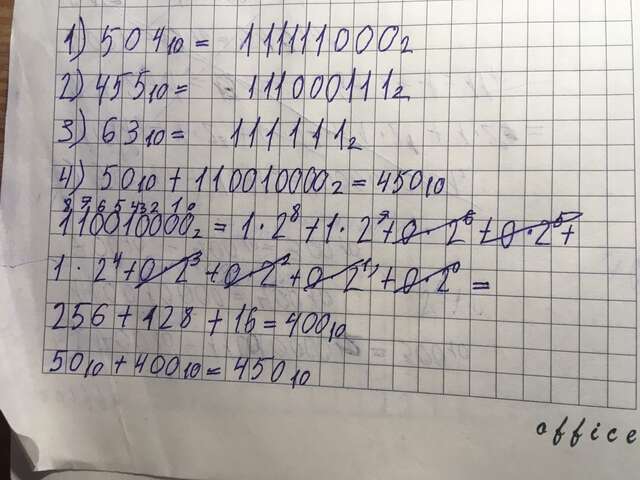 1) 504₁₀ = 111111000₂
2) 455₁₀ = 111000111₂
3) 63₁₀ = 111111₂
4) 50₁₀ + 110010000₂ = 450₁₀
8 7 6 5 4 3 2 1 0
110010000₂ = 1·2⁸ + 1·2⁷ + 0·2⁶ + 0·2⁵ +
1·2⁴ + 0·2³ + 0·2² + 0·2¹ + 0·2⁰ =
256 + 128 + 16 = 400₁₀
50₁₀ + 400₁₀ = 450₁₀
office